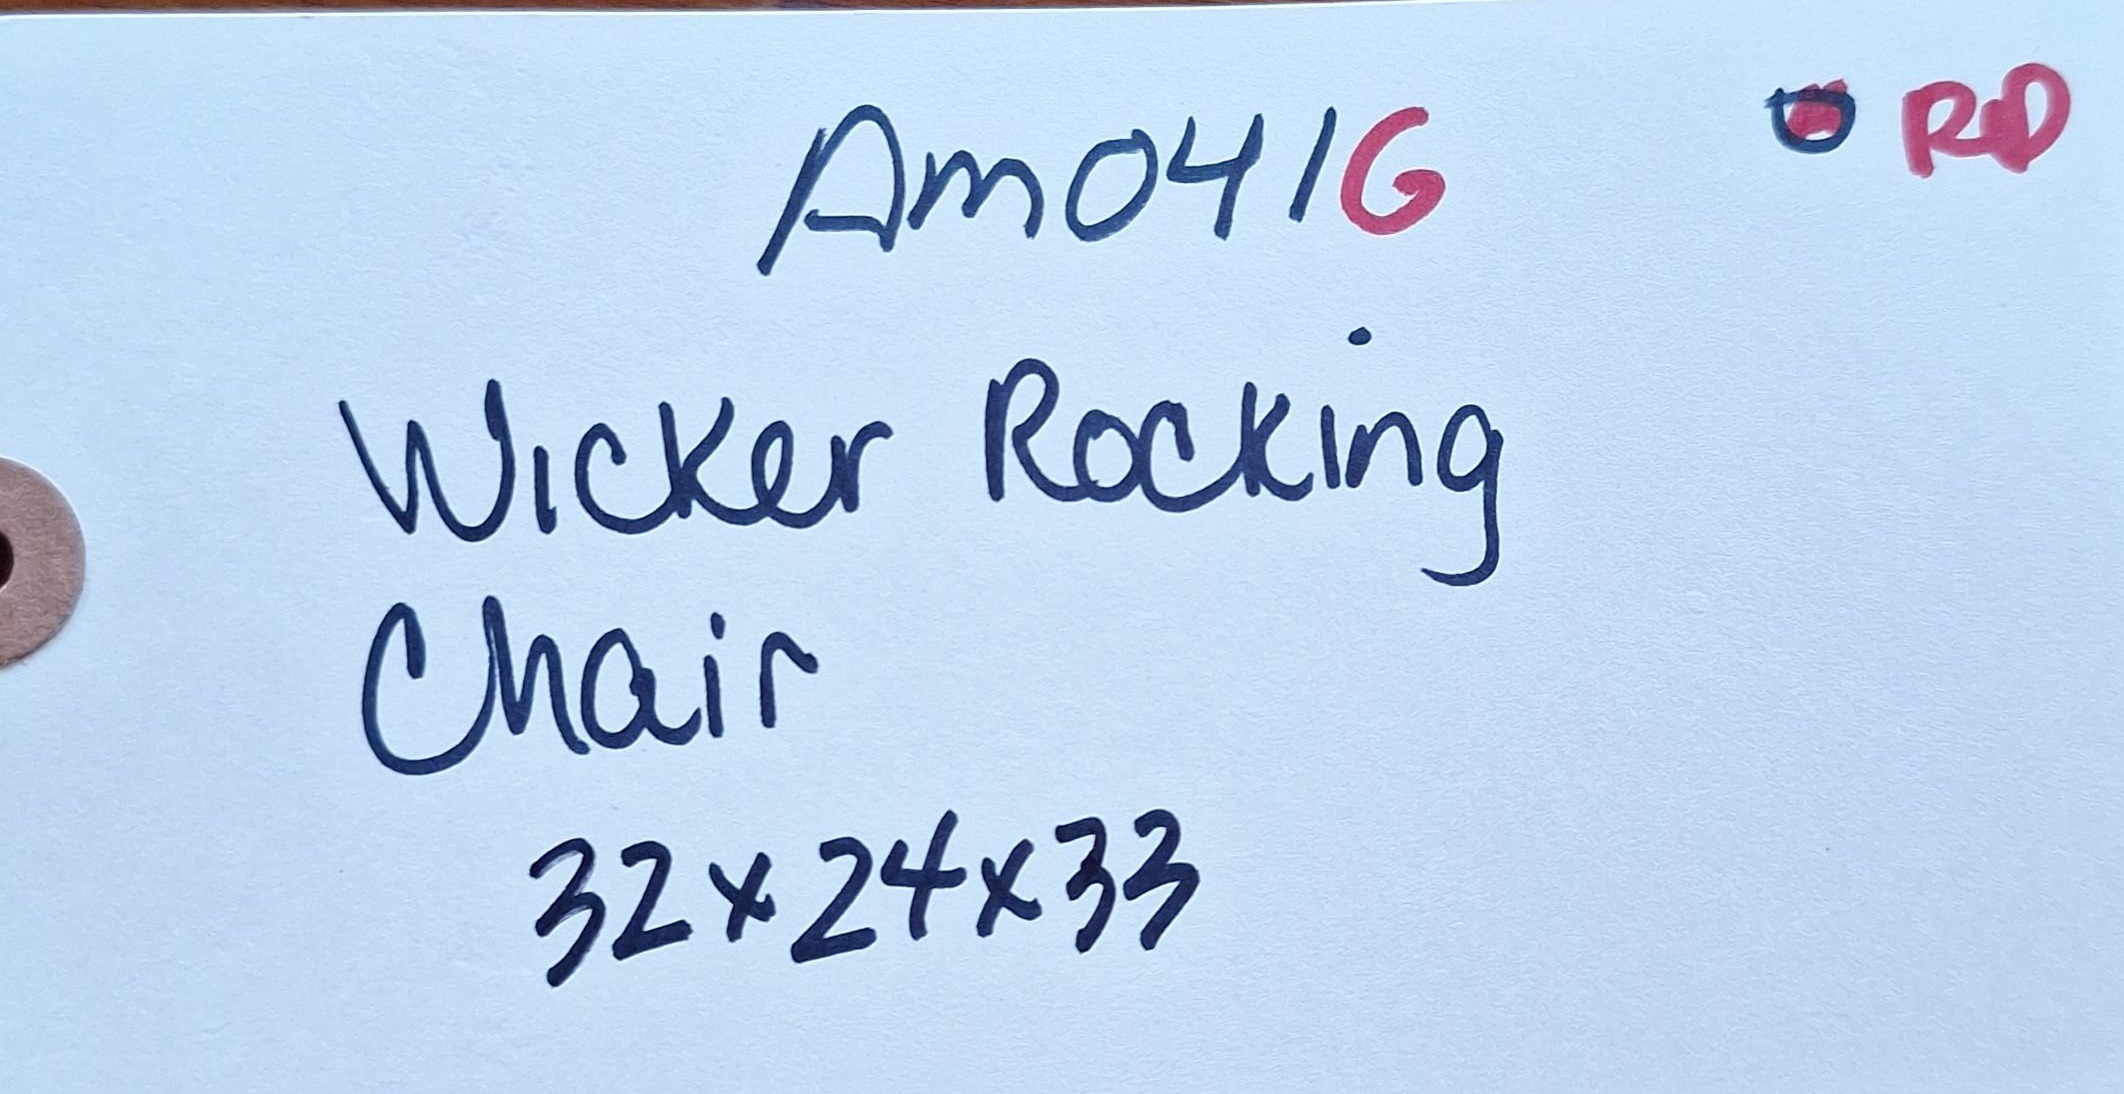 Am041G RD
Wicker Rocking
Chair
32x24x33